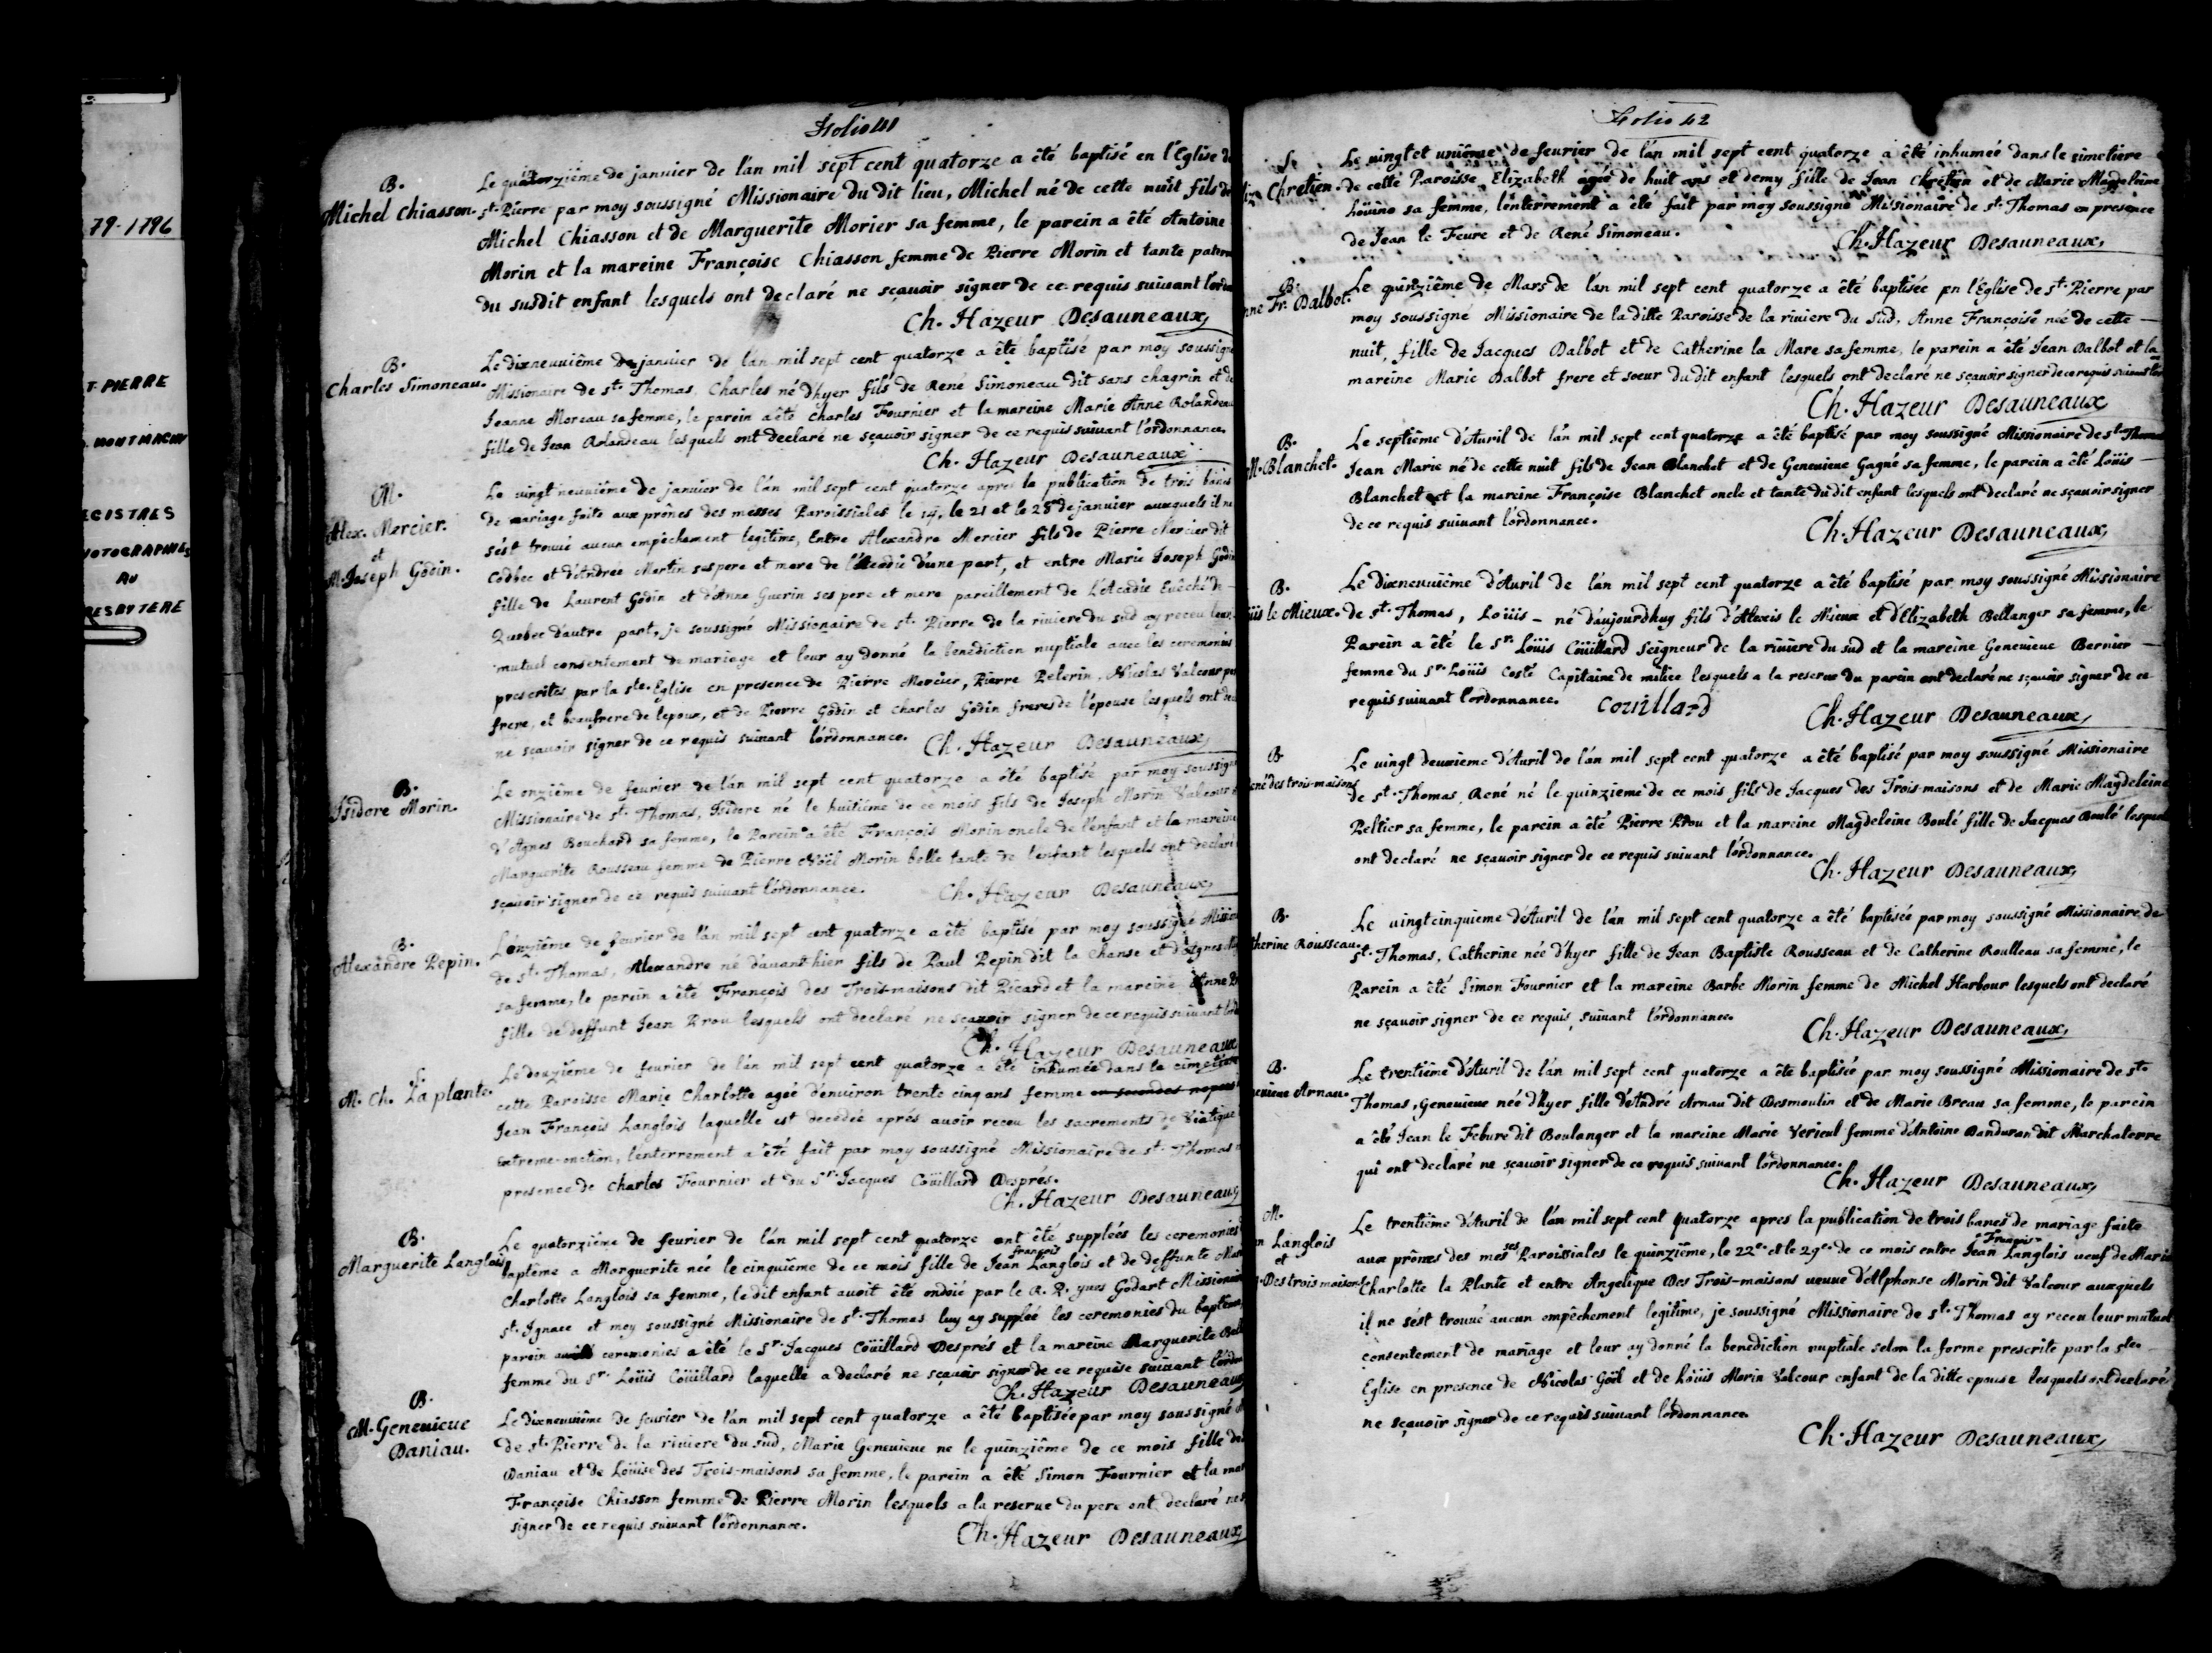 79-1796
T-PIERRE
MONTMAGNY
REGISTRES
PHOTOGRAPHIÉS
AU
PRESBYTERE
Folio 41
B.
Michel Chiasson.
Le quinzième de janvier de l'án mil sept cent quatorze a été baptisé en l'Eglise de
st. Pierre par moy soussigné Missionaire du dit lieu, Michel né de cette nuit fils de
Michel Chiasson et de Marguerite Morier sa femme, le parein a été Antoine
Morin et la mareine Françoise Chiasson femme de Pierre Morin et tante
du susdit enfant lesquels ont declaré ne sçavoir signer de ce requis suivant
Ch. Hazeur Desauneaux
B.
Charles Simoneau.
Le dixneuuiême de janvier de l'án mil sept cent quatorze a été baptisé par moy soussigné
Missionaire de st. Thomas, Charles né d'hyer fils de René Simoneau dit sans chagrin et de
Jeanne Moreau sa femme, le parein a été Charles Fournier et la mareine Marie Anne Rolandeau
fille de Jean Rolandeau lesquels ont declaré ne sçavoir signer de ce requis suivant l'ordonnance.
Ch. Hazeur Desauneaux
M.
Alex. Mercier.
et
M. Joseph Godin.
Le vingt neuuiême de janvier de l'án mil sept cent quatorze apres la publication de trois bancs
de mariage faite aux prônes des messes Paroissiales le 14, le 21 et le 28e de janvier auxquels il ne
s'ést trouué aucun empêchement legitime, Entre Alexandre Mercier fils de Pierre Mercier dit
Codbec et d'Andrée Martin ses pere et mere de l'Acadie d'une part, et entre Marie Joseph Godin
fille de Laurent Godin et d'Anne Guerin ses pere et mere pareillement de L'Acadie Euêché de
Quebec d'autre part, je soussigné Missionaire de st. Pierre de la riviere du sud ay receu leur
mutuel consentement de mariage et leur ay donné la benediction nuptiale avec les ceremonies
prescrites par la ste. Eglise en presence de Pierre Mercier, Pierre Pelerin, Nicolas Valcour
frere, et beaufrere de l'epoux, et de Pierre Godin et Charles Godin freres de l'épouse lesquels ont
ne sçavoir signer de ce requis suivant l'ordonnance.
Ch. Hazeur Desauneaux
B.
Isidore Morin.
Le onziême de feurier de l'án mil sept cent quatorze a été baptisé par moy soussigné
Missionaire de st. Thomas, Isidore né le huitiême de ce mois fils de Joseph Morin Valcour
d'Agnes Bouchard sa femme, le Parein a été François Morin oncle de l'enfant et la mareine
Marguerite Rousseau femme de Pierre Noël Morin belle tante de l'enfant lesquels ont declaré
sçavoir signer de ce requis suivant l'ordonnance.
Ch. Hazeur Desauneaux
B.
Alexandre Pepin.
L'onziême de feurier de l'án mil sept cent quatorze a été baptisé par moy soussigné
de st. Thomas, Alexandre né d'auant-hier fils de Paul Pepin dit la Chanse et d'Agnes
sa femme, le parein a été François des Trois-maisons dit Picard et la mareine Anne
fille de deffunt Jean Prou lesquels ont declaré ne sçavoir signer de ce requis suivant
Ch. Hazeur Desauneaux
S.
M. Ch. La plante.
Le douziême de feurier de l'án mil sept cent quatorze a été inhumée dans le cimetiere
cette Paroisse Marie Charlotte agée d'enuiron trente cinq ans femme en secondes nopces
Jean François Langlois laquelle est decedée aprés auoir receu les sacrements de Viatique
Extreme-onction, l'enterrement a été fait par moy soussigné Missionaire de st. Thomas
presence de Charles Fournier et du Sr. Jacques Coüillard Després.
Ch. Hazeur Desauneaux
B.
Marguerite Langlois
Le quatorziême de feurier de l'án mil sept cent quatorze ont été suppleées les ceremonies
françois
baptême a Marguerite née le cinquiême de ce mois fille de Jean Langlois et de deffunte
Charlotte Langlois sa femme, le dit enfant auoit été ondoié par le R. P. yues Godart Missionaire
st. Ignace et moy soussigné Missionaire de st. Thomas luy ay suppleé les ceremonies du baptême,
parein ceremonies a été le Sr. Jacques Coüillard Després et la mareine Marguerite
femme du Sr. Loüis Coüillard laquelle a declaré ne sçavoir signer de ce requise suivant
Ch. Hazeur Desauneaux
B.
M. Genevieue
Daniau.
Le dixneuuiême de feurier de l'án mil sept cent quatorze a été baptisée par moy soussigné
de st. Pierre de la riviere du sud, Marie Genevieue ne le quinziême de ce mois fille de
Daniau et de Loüise des Trois-maisons sa femme, le parein a été Simon Fournier et la
Françoise Chiasson femme de Pierre Morin lesquels a la reserue du pere ont declaré
signer de ce requis suivant l'ordonnance.
Ch. Hazeur Desauneaux
Folio 42
S.
Chretien.
Le vingt et uniême de feurier de l'án mil sept cent quatorze a été inhumée dans le simetiere
de cette Paroisse Elizabeth ageé de huit ans et demy fille de Jean Chretien et de Marie Magdeleine
Loüino sa femme, l'énterrement a été fait par moy soussigné Missionaire de st. Thomas en presence
de Jean le Feure et de René Simoneau.
Ch. Hazeur Desauneaux
B.
Fr. Dalbot.
Le quinziême de Mars de l'án mil sept cent quatorze a été baptisée en l'Eglise de st. Pierre par
moy soussigné Missionaire de la ditte Paroisse de la riviere du Sud, Anne Françoise née de cette
nuit, fille de Jacques Dalbot et de Catherine la Mare sa femme, le parein a été Jean Dalbot et la
mareine Marie Dalbot frere et soeur du dit enfant lesquels ont declaré ne sçavoir signer de ce requis suivant
Ch. Hazeur Desauneaux
B.
M. Blanchet.
Le septiême d'Auril de l'án mil sept cent quatorze a été baptisé par moy soussigné Missionaire de st. Thomas
Jean Marie né de cette nuit fils de Jean Blanchet et de Genevieue Gagné sa femme, le parein a été Loüis
Blanchet et la mareine Françoise Blanchet oncle et tante du dit enfant lesquels ont declaré ne sçavoir signer
de ce requis suivant l'ordonnance.
Ch. Hazeur Desauneaux
B.
le Mieux.
Le dixneuuiême d'Auril de l'án mil sept cent quatorze a été baptisé par moy soussigné Missionaire
de st. Thomas, Loüis né d'aujourdhuy fils d'Alexis le Mieux et d'Elizabeth Bellanger sa femme, le
Parein a été le Sr. Loüis Coüillard Seigneur de la riviere du sud et la mareine Genevieue Bernier
femme du Sr. Loüis Costé Capitaine de milice lesquels a la reserue du parein ont declaré ne sçavoir signer de ce
requis suivant l'ordonnance.
Couillard
Ch. Hazeur Desauneaux
B.
René des trois-maisons
Le vingt deuxieme d'Auril de l'án mil sept cent quatorze a été baptisé par moy soussigné Missionaire
de st. Thomas, René né le quinzieme de ce mois fils de Jacques des Trois-maisons et de Marie Magdeleine
Peltier sa femme, le parein a été Pierre Prou et la mareine Magdeleine Boulé fille de Jacques Boulé lesquels
ont declaré ne sçavoir signer de ce requis suivant l'ordonnance.
Ch. Hazeur Desauneaux
B.
Catherine Rousseau.
Le vingt cinquieme d'Auril de l'án mil sept cent quatorze a été baptisée par moy soussigné Missionaire de
st. Thomas, Catherine née d'hyer fille de Jean Baptiste Rousseau et de Catherine Roulleau sa femme, le
Parein a été Simon Fournier et la mareine Barbe Morin femme de Michel Harbour lesquels ont declaré
ne sçavoir signer de ce requis, suivant l'ordonnance.
Ch. Hazeur Desauneaux
B.
Genevieue Arnau.
Le trentiême d'Auril de l'án mil sept cent quatorze a été baptisée par moy soussigné Missionaire de st.
Thomas, Genevieue née d'hyer fille d'André Arnau dit Desmoulin et de Marie Breau sa femme, le parein
a été Jean le Febure dit Boulanger et la mareine Marie Verieul femme d'Antoine Danduran dit Marchaterre
qui ont declaré ne sçavoir signer de ce requis suivant l'ordonnance.
Ch. Hazeur Desauneaux
M.
Langlois
et
Des trois maisons
Le trentiême d'Auril de l'án mil sept cent quatorze apres la publication de trois bancs de mariage faite
François
aux prônes des messes Paroissiales le quinziême, le 22e. et le 29e. de ce mois entre Jean Langlois ueuf de Marie
Charlotte la Plante et entre Angelique Des Trois-maisons ueuue d'Alphonse Morin dit Valcour auxquels
il ne s'ést trouué aucun empêchement legitime, je soussigné Missionaire de st. Thomas ay receu leur mutuel
consentement de mariage et leur ay donné la benediction nuptiale selon la forme prescrite par la ste.
Eglise en presence de Nicolas Goël et de Loüis Morin Valcour enfant de la ditte epouse lesquels ont declaré
ne sçavoir signer de ce requis suivant l'ordonnance
Ch. Hazeur Desauneaux